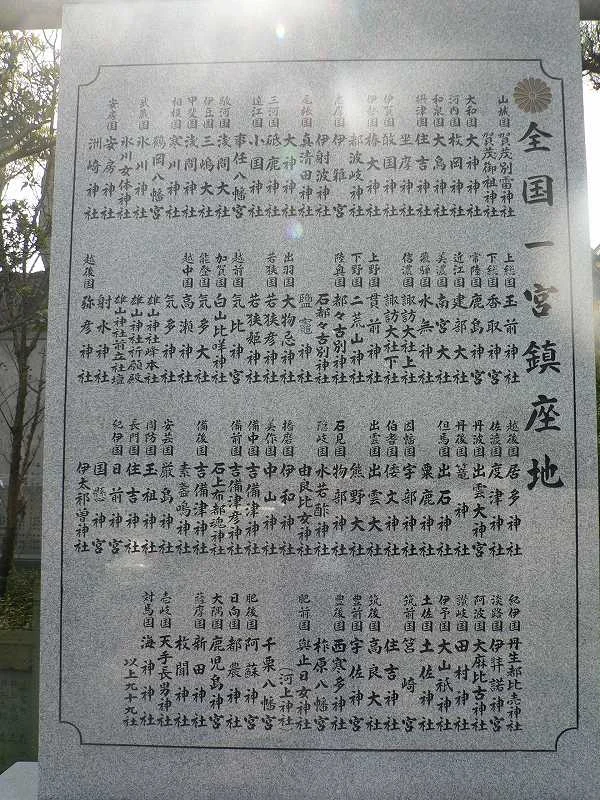 全国一宮鎮座地
山城国 賀茂別雷神社
賀茂御祖神社
大和国 大神神社
河内国 枚岡神社
和泉国 大鳥神社
摂津国 住吉神社
坐摩神社
伊賀国 敢国神社
伊勢国 椿大神社
都波岐神社
志摩国 伊雜宮
伊射波神社
尾張国 真清田神社
大神神社
三河国 砥鹿神社
遠江国 小国神社
事任八幡宮
駿河国 浅間大社
伊豆国 三嶋大社
甲斐国 浅間神社
相模国 寒川神社
鶴岡八幡宮
武蔵国 氷川神社
氷川女体神社
安房国 安房神社
洲崎神社
上総国 玉前神社
下総国 香取神宮
常陸国 鹿島神宮
近江国 建部大社
美濃国 南宮大社
飛騨国 水無神社
信濃国 諏訪大社上社
諏訪大社下社
上野国 貫前神社
下野国 二荒山神社
陸奥国 都々古別神社
石都々古別神社
鹽竈神社
出羽国 大物忌神社
若狭国 若狭彦神社
若狭姫神社
越前国 気比神宮
加賀国 白山比咩神社
能登国 気多大社
越中国 高瀬神社
気多神社
雄山神社峰本社
雄山神社祈願殿
雄山神社前立社壇
射水神社
越後国 弥彦神社
越後国 居多神社
佐渡国 度津神社
丹波国 出雲大神宮
丹後国 籠神社
但馬国 出石神社
粟鹿神社
因幡国 宇部神社
伯耆国 倭文神社
出雲国 出雲大社
熊野大社
石見国 物部神社
隠岐国 水若酢神社
由良比女神社
播磨国 伊和神社
美作国 中山神社
備中国 吉備津神社
備前国 吉備津彦神社
石上布都魂神社
備後国 吉備津神社
素盞嗚神社
安芸国 厳島神社
周防国 玉祖神社
長門国 住吉神社
紀伊国 日前神宮
国懸神宮
伊太祁曽神社
紀伊国 丹生都比売神社
淡路国 伊弉諾神宮
阿波国 大麻比古神社
讃岐国 田村神社
伊予国 大山祇神社
土佐国 土佐神社
筑前国 筥崎宮
住吉神社
筑後国 高良大社
豊前国 宇佐神宮
豊後国 西寒多神社
柞原八幡宮
肥前国 與止日女神社
（河上神社）
千栗八幡宮
肥後国 阿蘇神社
日向国 都農神社
大隅国 鹿児島神宮
薩摩国 新田神社
枚聞神社
壱岐国 天手長男神社
対馬国 海神神社
以上九十九社